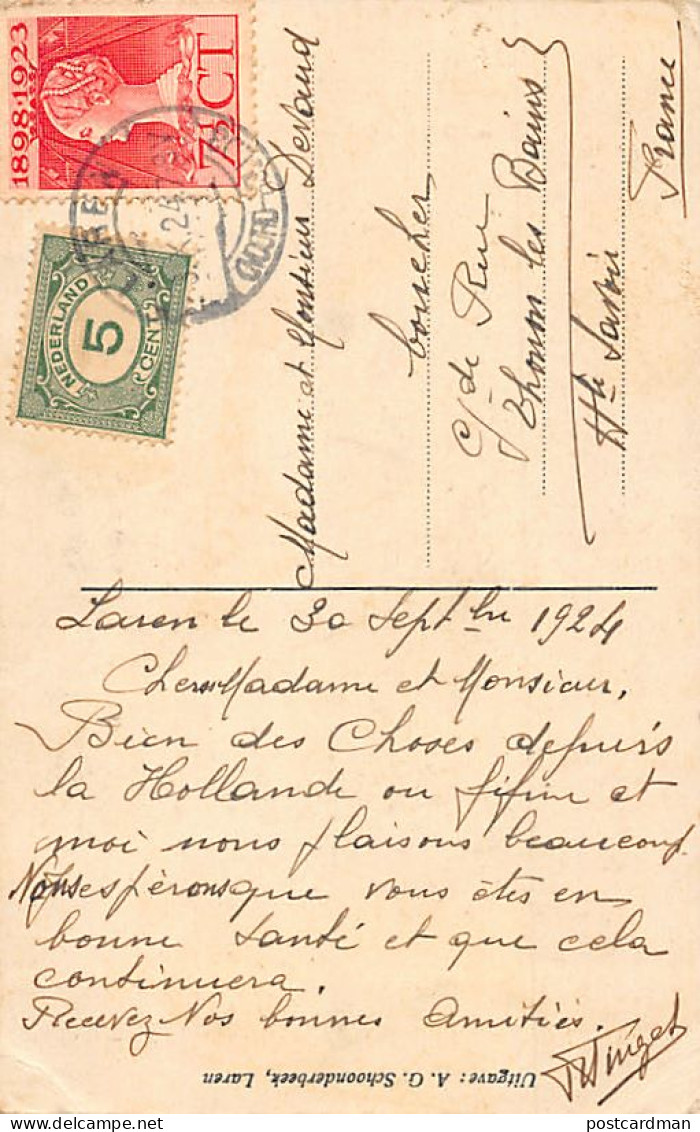 1898·1923
7½ CT
NEDERLAND
5
CENT
Madame et Monsieur
C/de Rue
Thonon les Bains
Hte Savoie
France
Laren le 30 Septbre 1924
Chers Madame et Monsieur,
Bien des Choses depuis
la Hollande ou fifine et
moi nous plaisons beaucoup.
Nous espérons que vous êtes en
bonne santé et que cela
continuera.
Recevez Nos bonnes Amitiés.
Uitgave: A. G. Schoonderbeek, Laren
postcardman